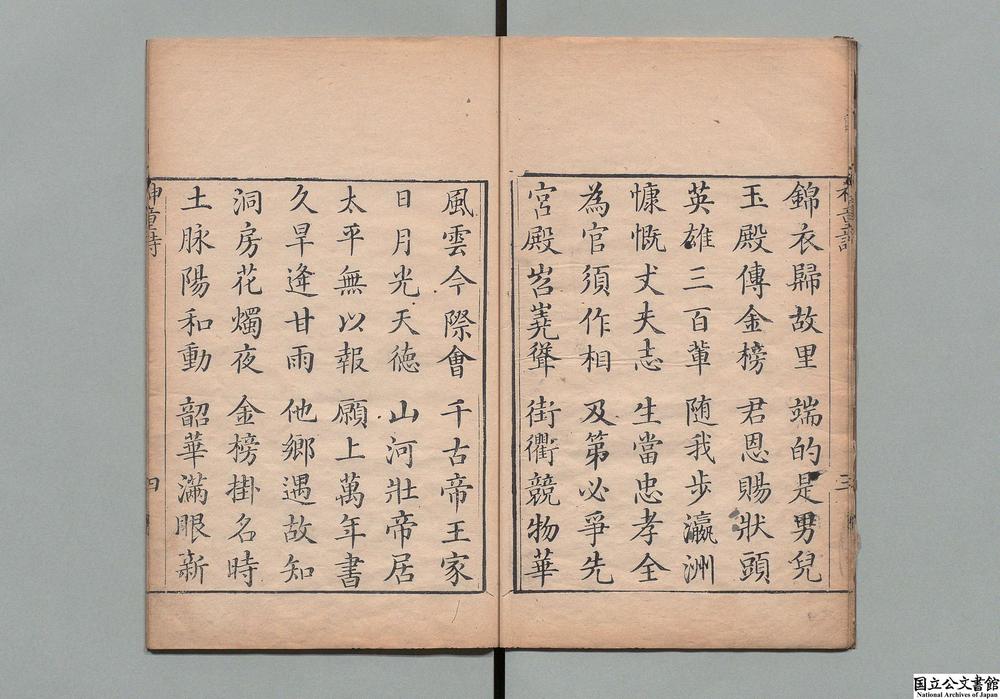 錦衣歸故里 端的是男兒
玉殿傳金榜 君恩賜狀頭
英雄三百輩 随我步瀛洲
慷慨丈夫志 生當忠孝全
為官須作相 及第必爭先
宮殿岧嶤聳 街衢競物華
三
風雲今際會 千古帝王家
日月光天德 山河壯帝居
太平無以報 願上萬年書
久旱逢甘雨 他鄉遇故知
洞房花燭夜 金榜掛名時
土脉陽和動 韶華滿眼新
神童詩
四
国立公文書館
National Archives of Japan